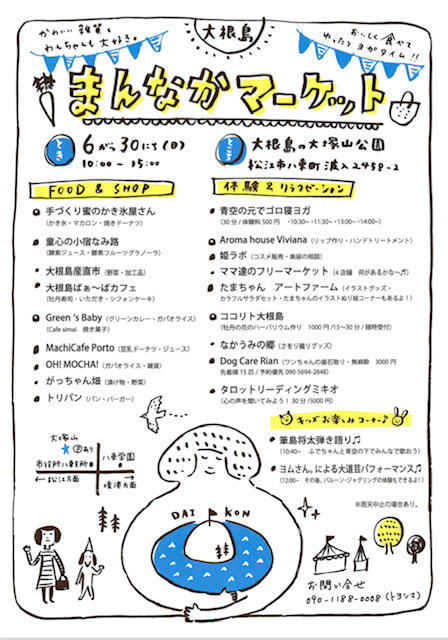 かわいい雑貨と
わんちゃんも大好き。
大根島
おいしく食べて
ゆったりヨガタイム!!
まんなかマーケット
とき
6がつ30にち(日)
10:00 - 15:00
ところ
大根島の大塚山公園
松江市八束町波入2458-2
FOOD & SHOP
手づくり蜜のかき氷屋さん
(かき氷・マカロン・焼きドーナツ)
童心の小宿なみ路
(酵素ジュース・酵素フルーツグラノーラ)
大根島産直市 (野菜・加工品)
大根島ばぁ〜ばカフェ
(牡丹寿司・いただき・シフォンケーキ)
Green 's Baby (グリーンカレー・ガパオライス)
(Cafe simai 焼き菓子)
MachiCafe Porto (豆乳ドーナツ・ジュース)
OH! MOCHA! (ガパオライス・雑貨)
がっちゃん畑 (漬け物・野菜)
トリパン (パン・バーガー)
体験&リラクゼーション
青空の元でゴロ寝ヨガ
(30分/体験料500円 ・10:30~・11:30~・13:00~・14:00~)
Aroma house Viviana (リップ作り・ハンドトリートメント)
姫ラボ (コスメ販売・美容の相談)
ママ達のフリーマーケット (4店舗 何があるかな〜♬)
たまちゃん アートファーム (イラストグッズ・
カラフルサラダセット・たまちゃんのイラストぬり絵コーナーもあるよ!)
ココリト大根島
(牡丹の花のハーバリウム作り 1000円/15〜30分/随時受付)
なかうみの郷 (さをり織りグッズ)
Dog Care Rian (ワンちゃんの歯石取り・無麻酔 3000円
先着順15匹/予約優先090-5694-2848)
タロットリーディングミキオ
(心の声を聞いてみよう!30分/3000円)
キッズお楽しみコーナー♪
筆島将太弾き語り♫
(10:40~ ふでちゃんと青空の下でみんなで歌おう)
ヨムさん。による大道芸パフォーマンス♫
(12:00~ その後、バルーン・ジャグリングの体験もできるよ!)
※雨天中止の場合あり。
大塚山
Pあり
市役所八束支所
八束学園
←松江方面
境港方面
DAIKON
お問い合せ
090-1188-0008 (トヨシマ)